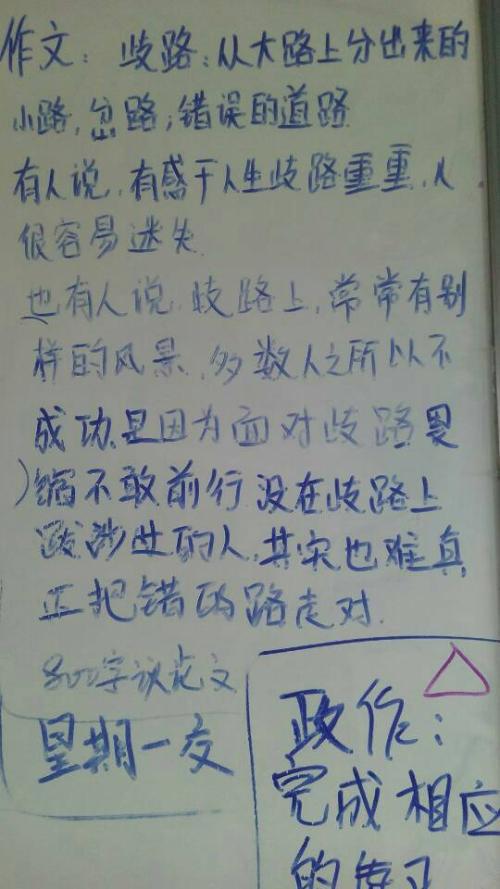 作文：歧路：从大路上分出来的
小路，岔路；错误的道路
有人说，有感于人生歧路重重，人
很容易迷失
也有人说，歧路上，常常有别
样的风景，多数人之所以不
成功是因为面对歧路畏
缩不敢前行没在歧路上
跋涉过的人，其实也难真
正把错的路走对．
800字议论文
星期一交
政作：
完成相应
的练习